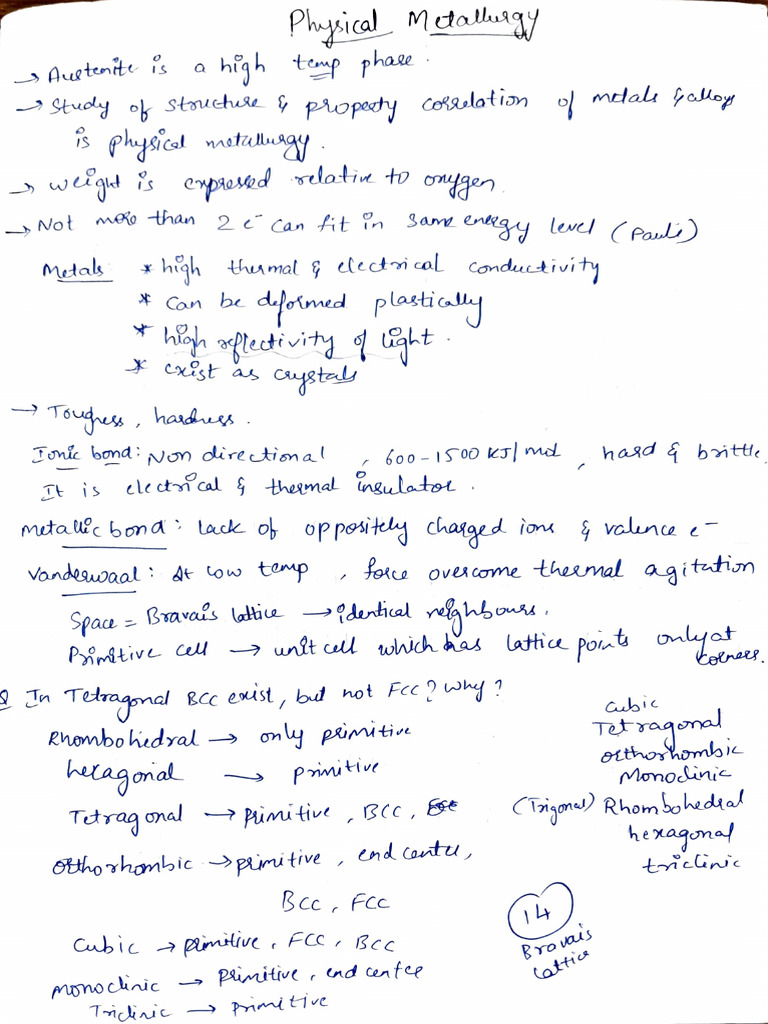 Physical Metallurgy
→ Austenite is a high temp phase.
→ Study of structure & property correlation of metals & alloys
is physical metallurgy.
→ weight is expressed relative to oxygen.
→ Not more than 2 e⁻ can fit in same energy level (Pauli)
Metals * high thermal & electrical conductivity
* can be deformed plastically
* high reflectivity of light.
* exist as crystals
→ Tougness, hardness.
Ionic bond: Non directional, 600-1500 KJ/mol, hard & brittle
It is electrical & thermal insulator.
Metallic bond: lack of oppositely charged ions & valence e⁻
Vanderwaal: At low temp, force overcome thermal agitation
Space = Bravais lattice → identical neighbours.
Primitive cell → unit cell which has lattice points only at
corners.
Q In Tetragonal BCC exist, but not FCC? Why?
Rhombohedral → only primitive
hexagonal → primitive
Tetragonal → primitive, BCC,
Orthorhombic → primitive, end center,
BCC, FCC
Cubic → primitive, FCC, BCC
Monoclinic → primitive, end center
Triclinic → primitive
Cubic
Tetragonal
Orthorhombic
Monoclinic
(Trigonal) Rhombohedral
hexagonal
triclinic
14
Bravais
lattice